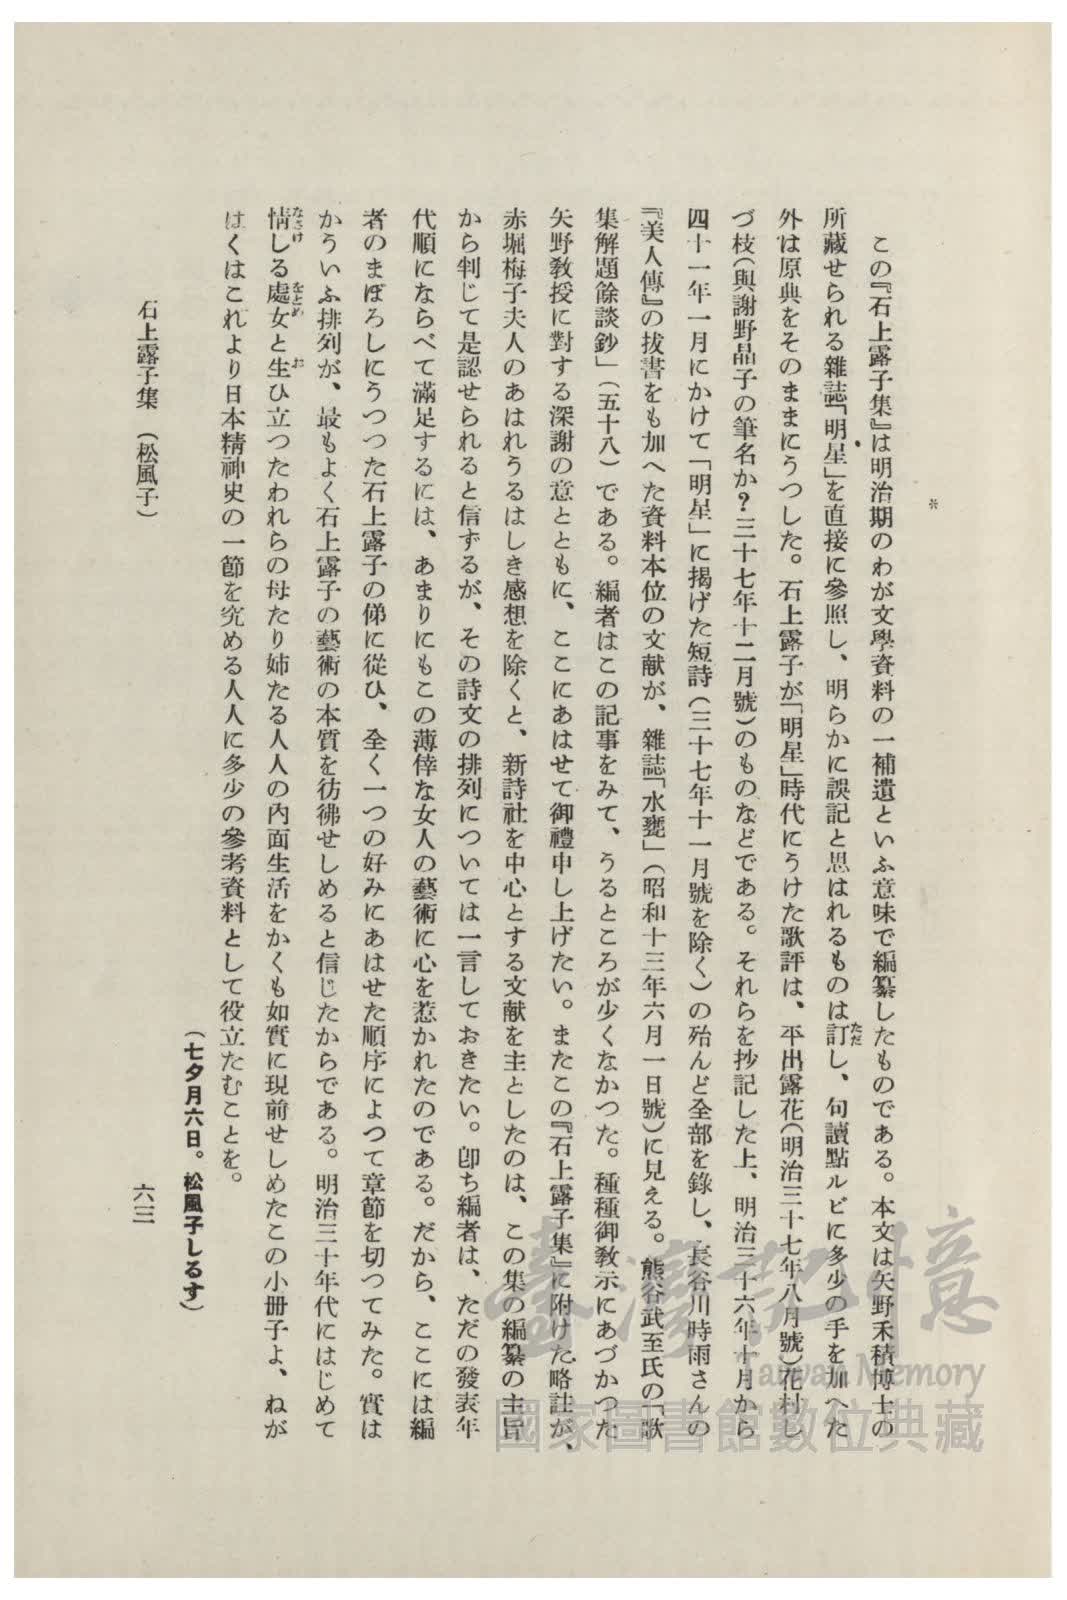 *
この『石上露子集』は明治期のわが文學資料の一補遺といふ意味で編纂したものである。本文は矢野禾積博士の
所藏せられる雜誌「明星」を直接に參照し、明らかに誤記と思はれるものは訂し、句讀點ルビに多少の手を加へた
ただ
外は原典をそのままにうつした。石上露子が「明星」時代にうけた歌評は、平出露花(明治三十七年八月號)花村し
づ枝(與謝野晶子の筆名か?三十七年十二月號)のものなどである。それらを抄記した上、明治三十六年十月から
四十一年一月にかけて「明星」に揭げた短詩(三十七年十一月號を除く)の殆んど全部を錄し、長谷川時雨さんの
『美人傳』の拔書をも加へた資料本位の文献が、雜誌「水甕」(昭和十三年六月一日號)に見える。熊谷武至氏の「歌
集解題餘談鈔」(五十八)である。編者はこの記事をみて、うるところが少くなかつた。種種御敎示にあづかつた
矢野敎授に對する深謝の意とともに、ここにあはせて御禮申し上げたい。またこの『石上露子集』に附けた略註が、
赤堀梅子夫人のあはれうるはしき感想を除くと、新詩社を中心とする文献を主としたのは、この集の編纂の主旨
から判じて是認せられると信ずるが、その詩文の排列については一言しておきたい。卽ち編者は、ただの發表年
代順にならべて滿足するには、あまりにもこの薄倖な女人の藝術に心を惹かれたのである。だから、ここには編
者のまぼろしにうつつた石上露子の俤に從ひ、全く一つの好みにあはせた順序によつて章節を切つてみた。實は
かういふ排列が、最もよく石上露子の藝術の本質を彷彿せしめると信じたからである。明治三十年代にはじめて
情しる處女と生ひ立つたわれらの母たり姉たる人人の內面生活をかくも如實に現前せしめたこの小冊子よ、ねが
なさけ をとめ お
はくはこれより日本精神史の一節を究める人人に多少の參考資料として役立たむことを。
(七夕月六日。松風子しるす)
石上露子集 (松風子)
六三
臺灣記憶
Taiwan Memory
國家圖書館數位典藏